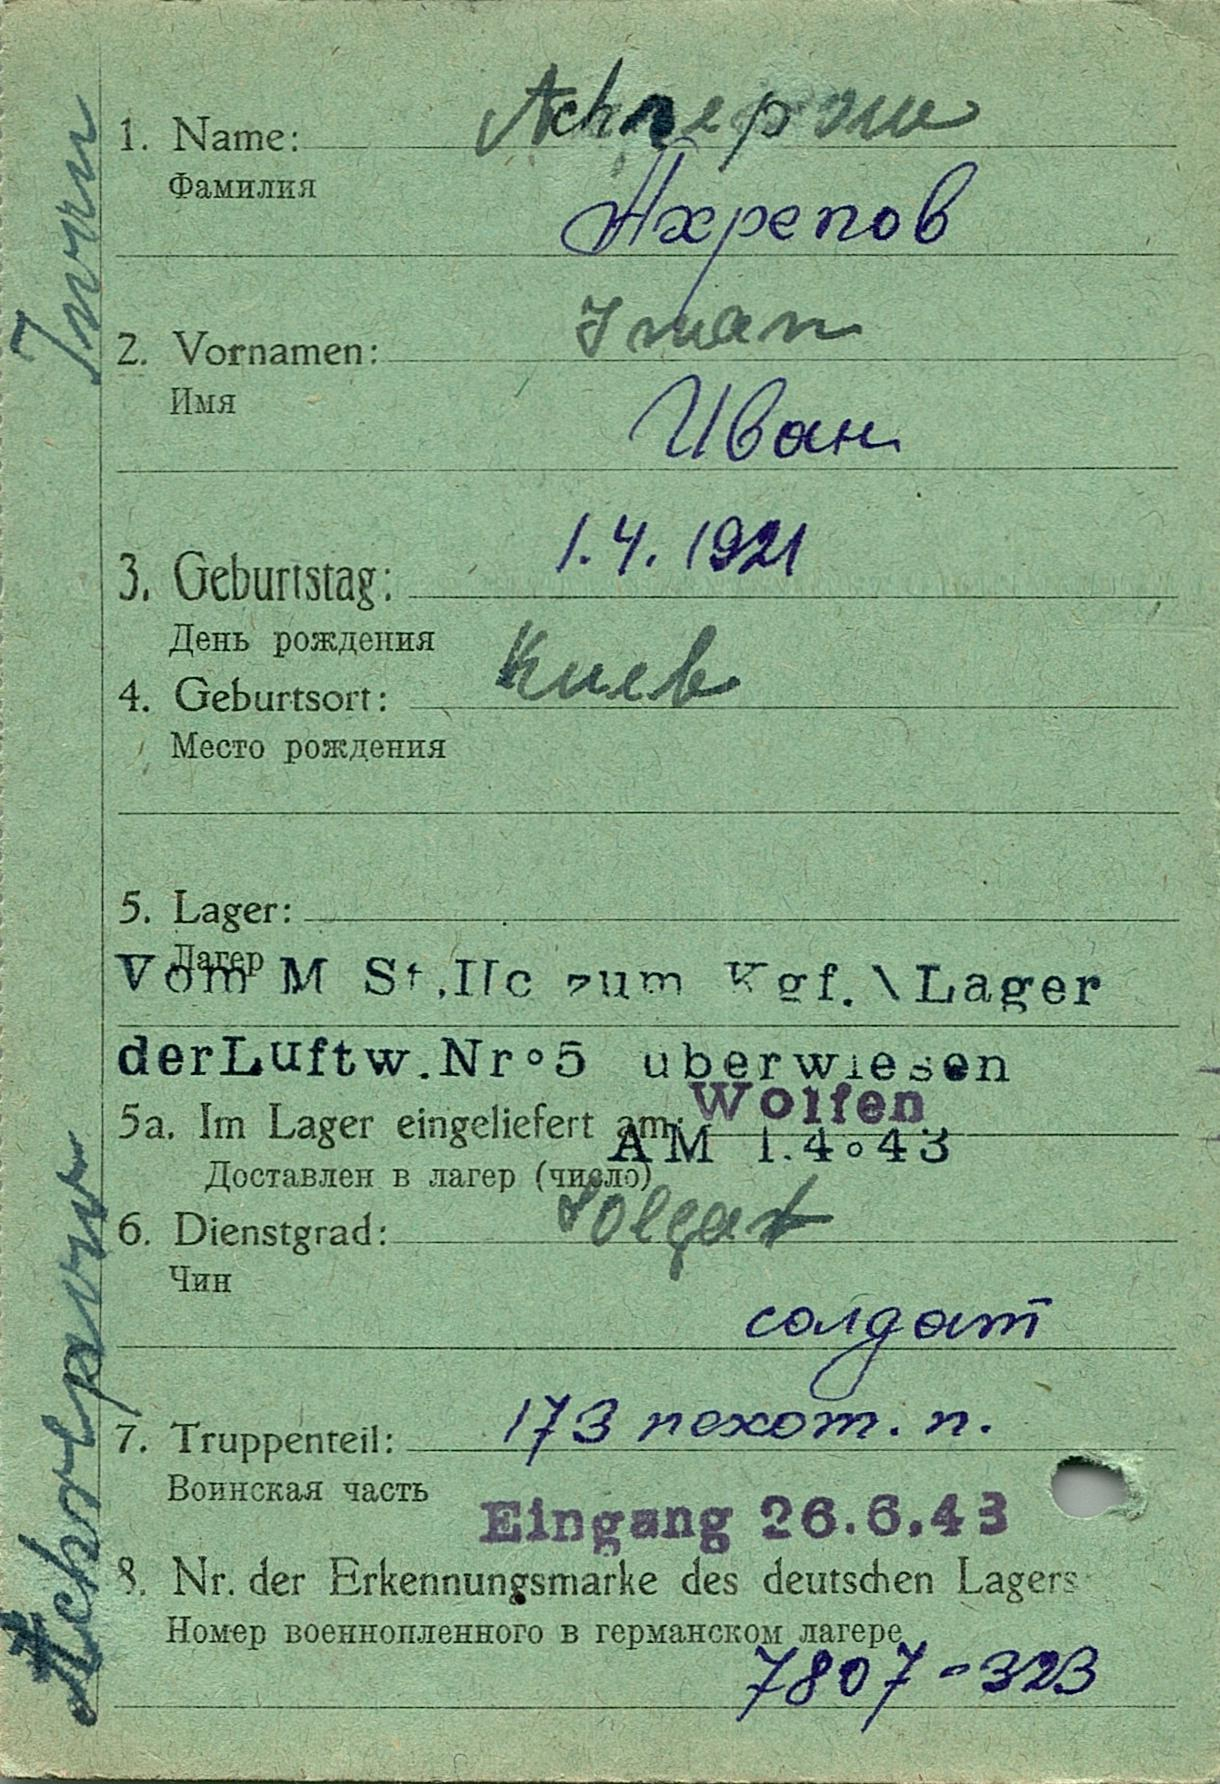 1. Name: Achrepow
Фамилия
Ахрепов
2. Vornamen: Iwan
Имя
Иван
3. Geburtstag: 1.4.1921
День рождения
4. Geburtsort: Киев
Место рождения
5. Lager:
Лагер
Vom M St.IIc zum Kgf.\Lager
derLuftw.Nr.5 uberwiesen
Wolfen
5a. Im Lager eingeliefert am:
AM 1.4.43
Доставлен в лагер (число)
6. Dienstgrad: Solgat
Чин
солдат
7. Truppenteil: 173 пехот. п.
Воинская часть
Eingang 26.6.43
8. Nr. der Erkennungsmarke des deutschen Lagers
Номер военнопленного в германском лагере
7807-323
Iwan